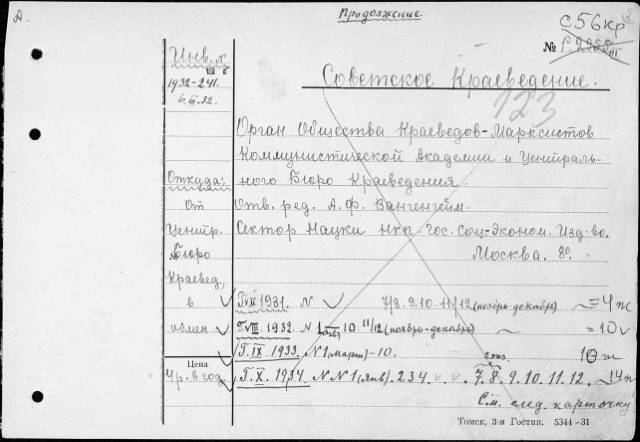 Продолжение.
А.
С56кр
№
Инв. №
1932-241.
6.III.32.
Советское Краеведение.
123
Орган Общества Краеведов-Марксистов
Коммунистической Академии и Централь-
ного Бюро Краеведения.
Откуда:
От
Центр.
Бюро
Краевед,
в
обмен
Отв. ред. А. Ф. Вангенгейм.
Сектор Науки нкп. Гос. Соц-Эконом. Изд-во.
Москва. 8º.
1931. N 7/8. 9. 10. 11/12 (ноябрь-декабрь) = 4
Г. VIII. 1932. N 1 10. 11/12 (ноябрь-декабрь) = 10
Г. IX. 1933. N 1 (март) - 10.
Цена
4 р. в год.
Г. X. 1934. N N 1 (янв) 2 3 4 . 7. 8. 9. 10. 11. 12.
См. след. карточку
Томск, 3-я Гостип. 5344-31